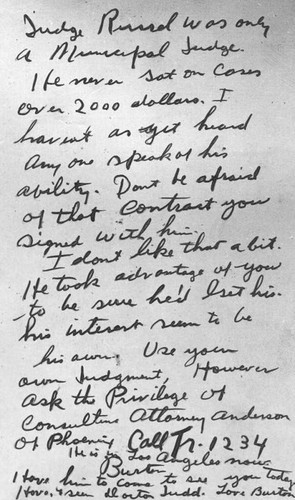 Judge Russel was only
a Municipal Judge.
He never sat on cases
over 2000 dollars. I
havent as yet heard
any one speak of his
ability. Dont be afraid
of that contract you
signed with him.
I dont like that a bit.
He took advantage of you
to be sure he'd set his
his interest seem to be
his own. Use your
own Judgment, However
ask the Privilege of
Consulting Attorney Anderson
of Phoenix Call Tr. 1234
He is in Los Angeles now
Burton
Have him to come to see you today
Have seen Judd Love Burton